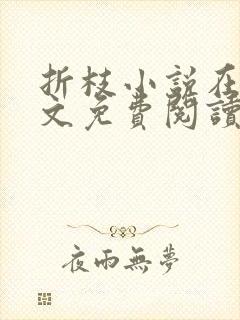 折枝小說在
文免費閱讀
夜雨無夢